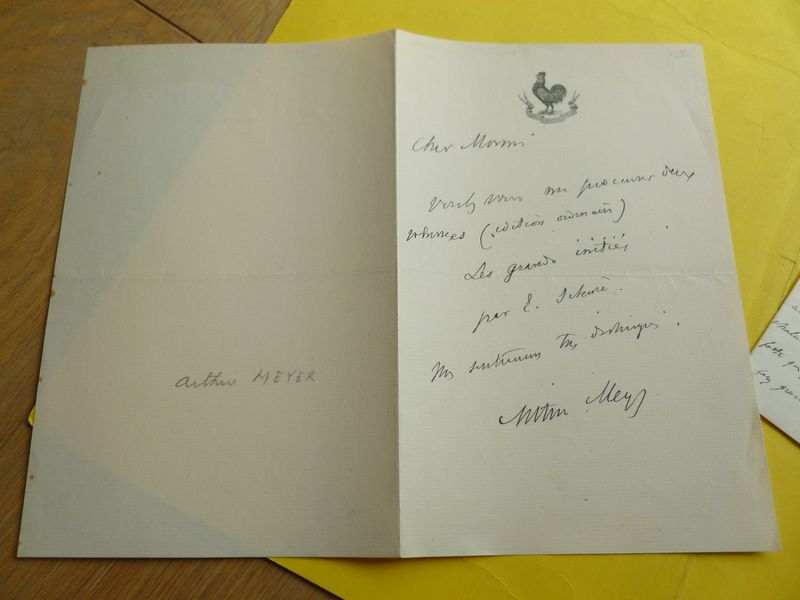 Arthur MEYER
Cher Monsieur
Voulez vous me procurer deux
volumes (édition ordinaire)
Les grands initiés
par E. Schuré.
Mes sentiments très distingués.
Arthur Meyer